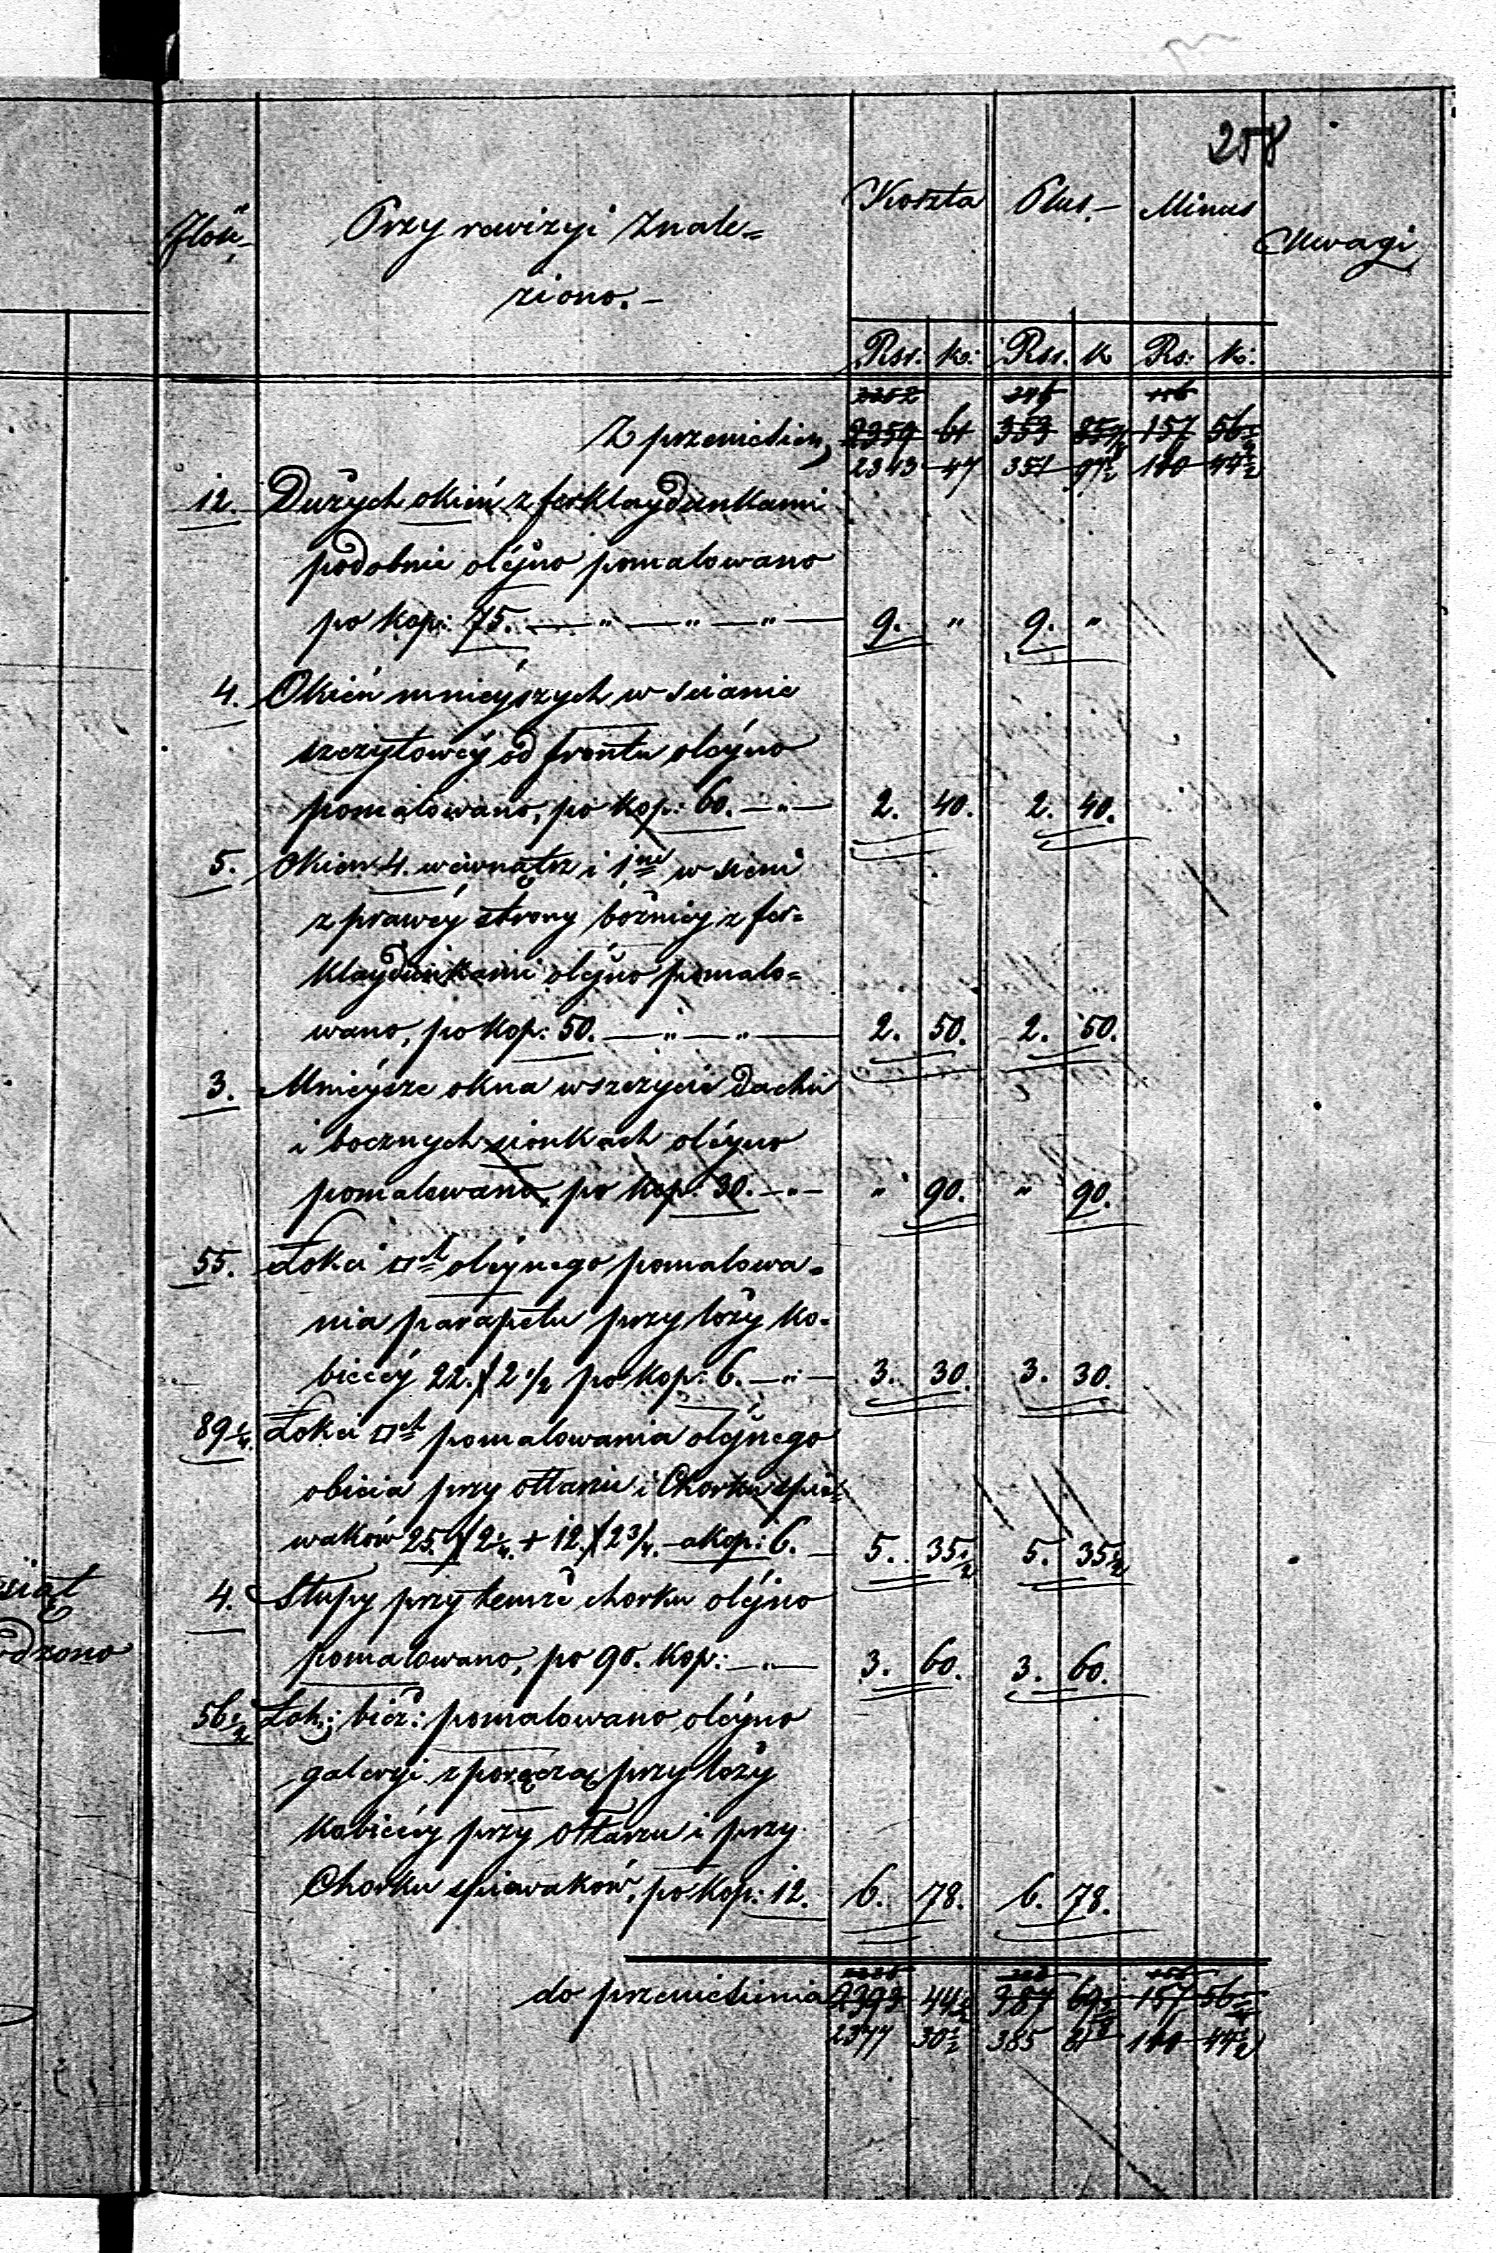 258
Ilość Przy rewizyi Znale= Koszta Plus.- Minus Uwagi
ziono.-
Rsr: k: Rsr. k Rs: k:
2352 346 156
Z przeniesien, 2359 61 353 157 56½
2343 47 351 97½ 160 44½
12. Dużych okień z ferklaydunkami
podobnie oléyno pomalowano
po kop: 75. — " — " — " — 9. " 9. "
4. Okień mnieyszych w scianie
szczytowéy od frontu oléyno
pomalowano, po kop: 60. — " — 2. 40. 2. 40.
5. Okien 4. wewnątrz i 1ne w sieni
z prawéy strony bożnicy z fer=
klaydunkami oléyno pomalo=
wano, po kop: 50. — " — " — 2. 50. 2. 50.
3. Mnieysze okna w szczycie dachu
i bocznych sionkach oléyno
pomalowano, po kop: 30. — " — " 90. " 90.
55. Łokci □ch oléynego pomalowa=
nia parapetu przy loży ko=
biecéy 22. X 2 1/2 po kop: 6. — " — 3. 30. 3. 30.
89¼. Łokci □ch pomalowania oléynego
obicia przy ołtarzu i Chorku spie=
waków 25. X 2¼. + 12. X 2¾. — a kop: 6. — 5. 35½ 5. 35½
4. Słupy przy temże chorku oléyno
pomalowano, po 90. kop: — " — 3. 60. 3. 60.
56½ Łok: bież: pomalowano oléyno
galeryi z poręczą przy loży
kobiecéy przy ołtarzu i przy
Chorku spiewaków, po kop: 12. 6. 78. 6. 78.
do przeniesienia 2393 44½ 387 69 157 56½
2377 30½ 385 81 160 44½
siąt
odzono